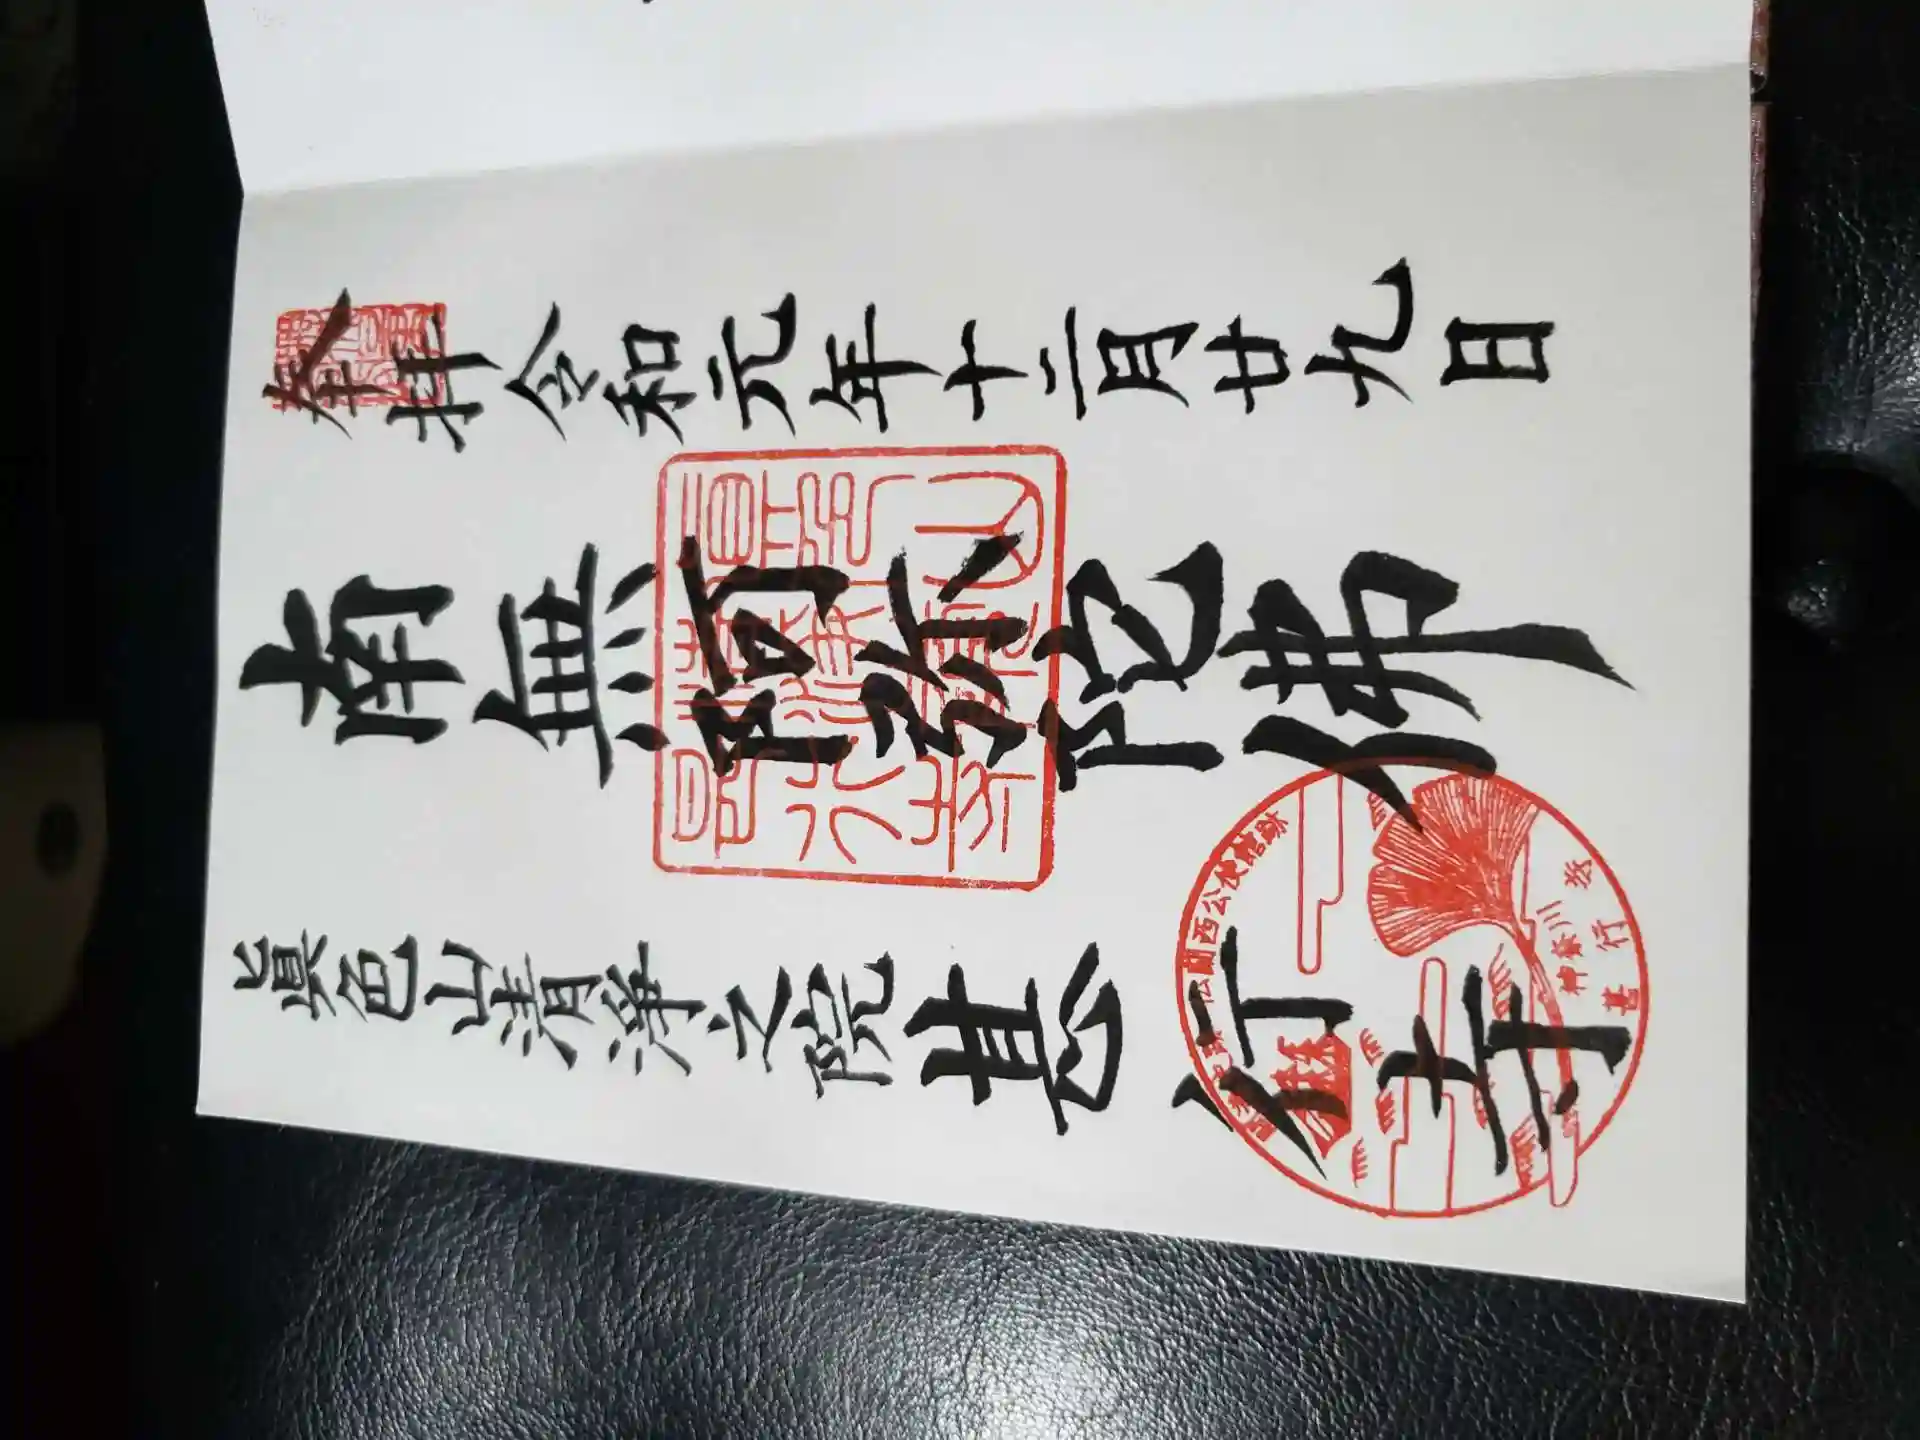 奉拝 令和元年十二月廿九日
南無阿弥陀佛
眞色山清浄之院 甚行寺
神奈川
甚行寺